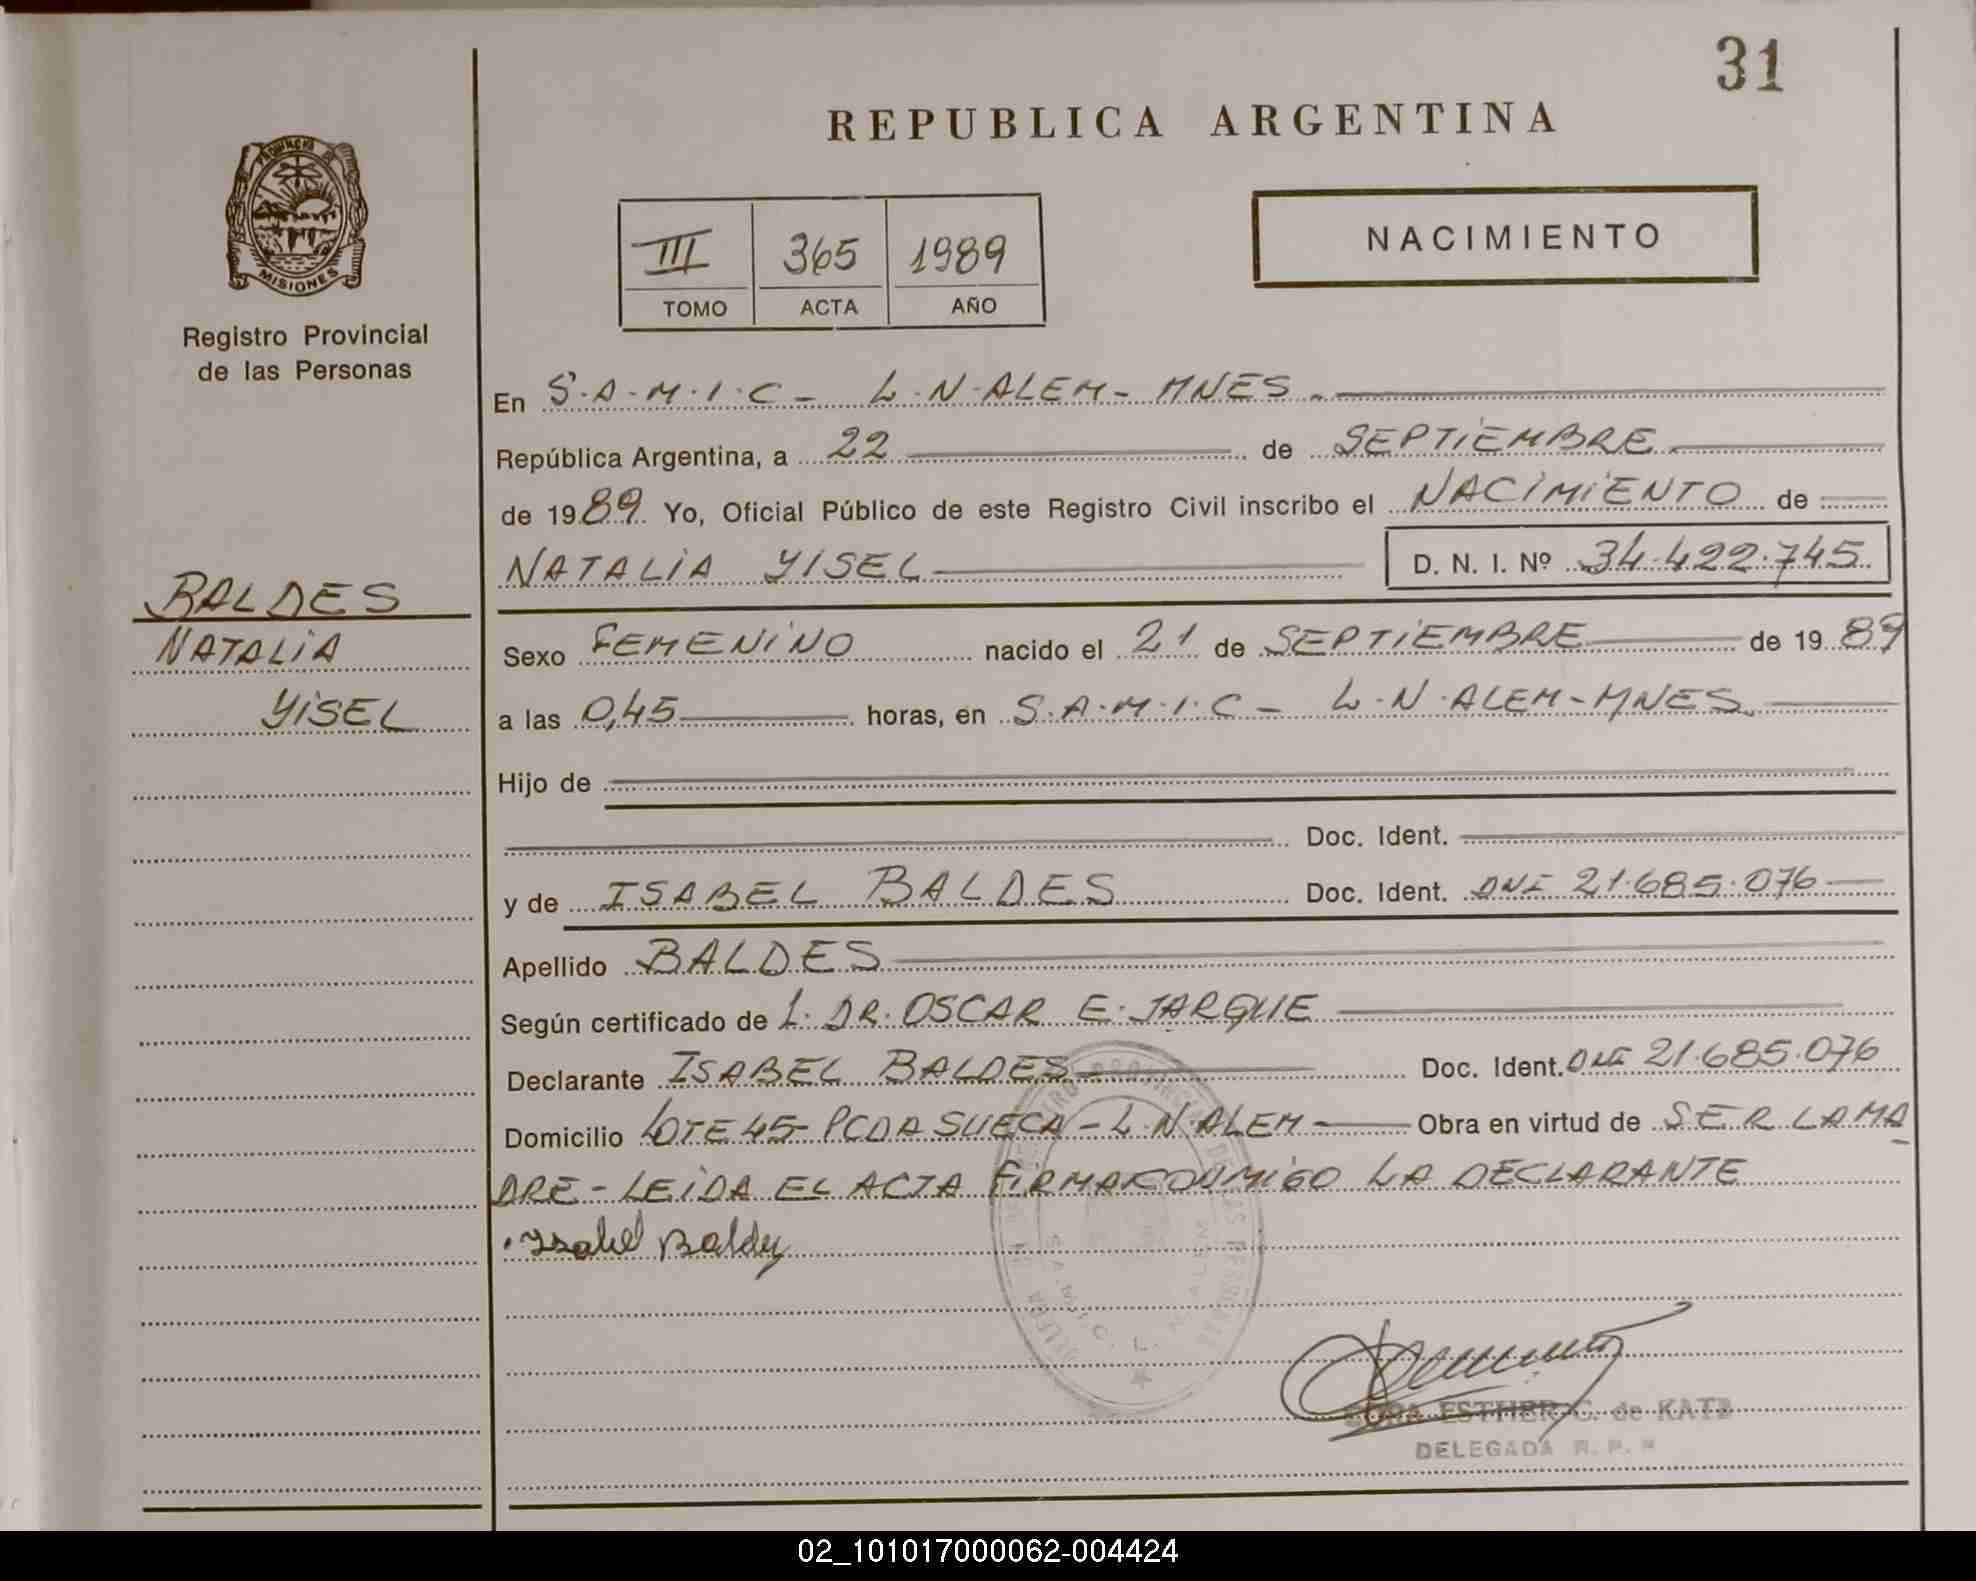 31
REPUBLICA ARGENTINA
PROVINCIA DE
MISIONES
Registro Provincial
de las Personas
III 365 1989
TOMO ACTA AÑO
NACIMIENTO
En S.A.M.I.C - L.N.ALEM - MNES.
República Argentina, a 22 de SEPTIEMBRE
de 1989 Yo, Oficial Público de este Registro Civil inscribo el NACIMIENTO de
NATALIA YISEL D. N. I. Nº 34.422.745
BALDES
NATALIA
YISEL
Sexo FEMENINO nacido el 21 de SEPTIEMBRE de 1989
a las 0,45 horas, en S.A.M.I.C - L.N.ALEM-MNES.
Hijo de
Doc. Ident.
y de ISABEL BALDES Doc. Ident. DNI 21.685.076
Apellido BALDES
Según certificado de L. DR. OSCAR E. JARQUE
Declarante ISABEL BALDES Doc. Ident. DNI 21.685.076
Domicilio LOTE 45 PCDA SUECA - L.N.ALEM Obra en virtud de SER LA MA
DRE - LEIDA EL ACTA FIRMA CONMIGO LA DECLARANTE
Isabel Baldes
S.A.M.I.C. L. N. ALEM
ESTHER C. de KATZ
DELEGADA R. P. P
02_101017000062-004424